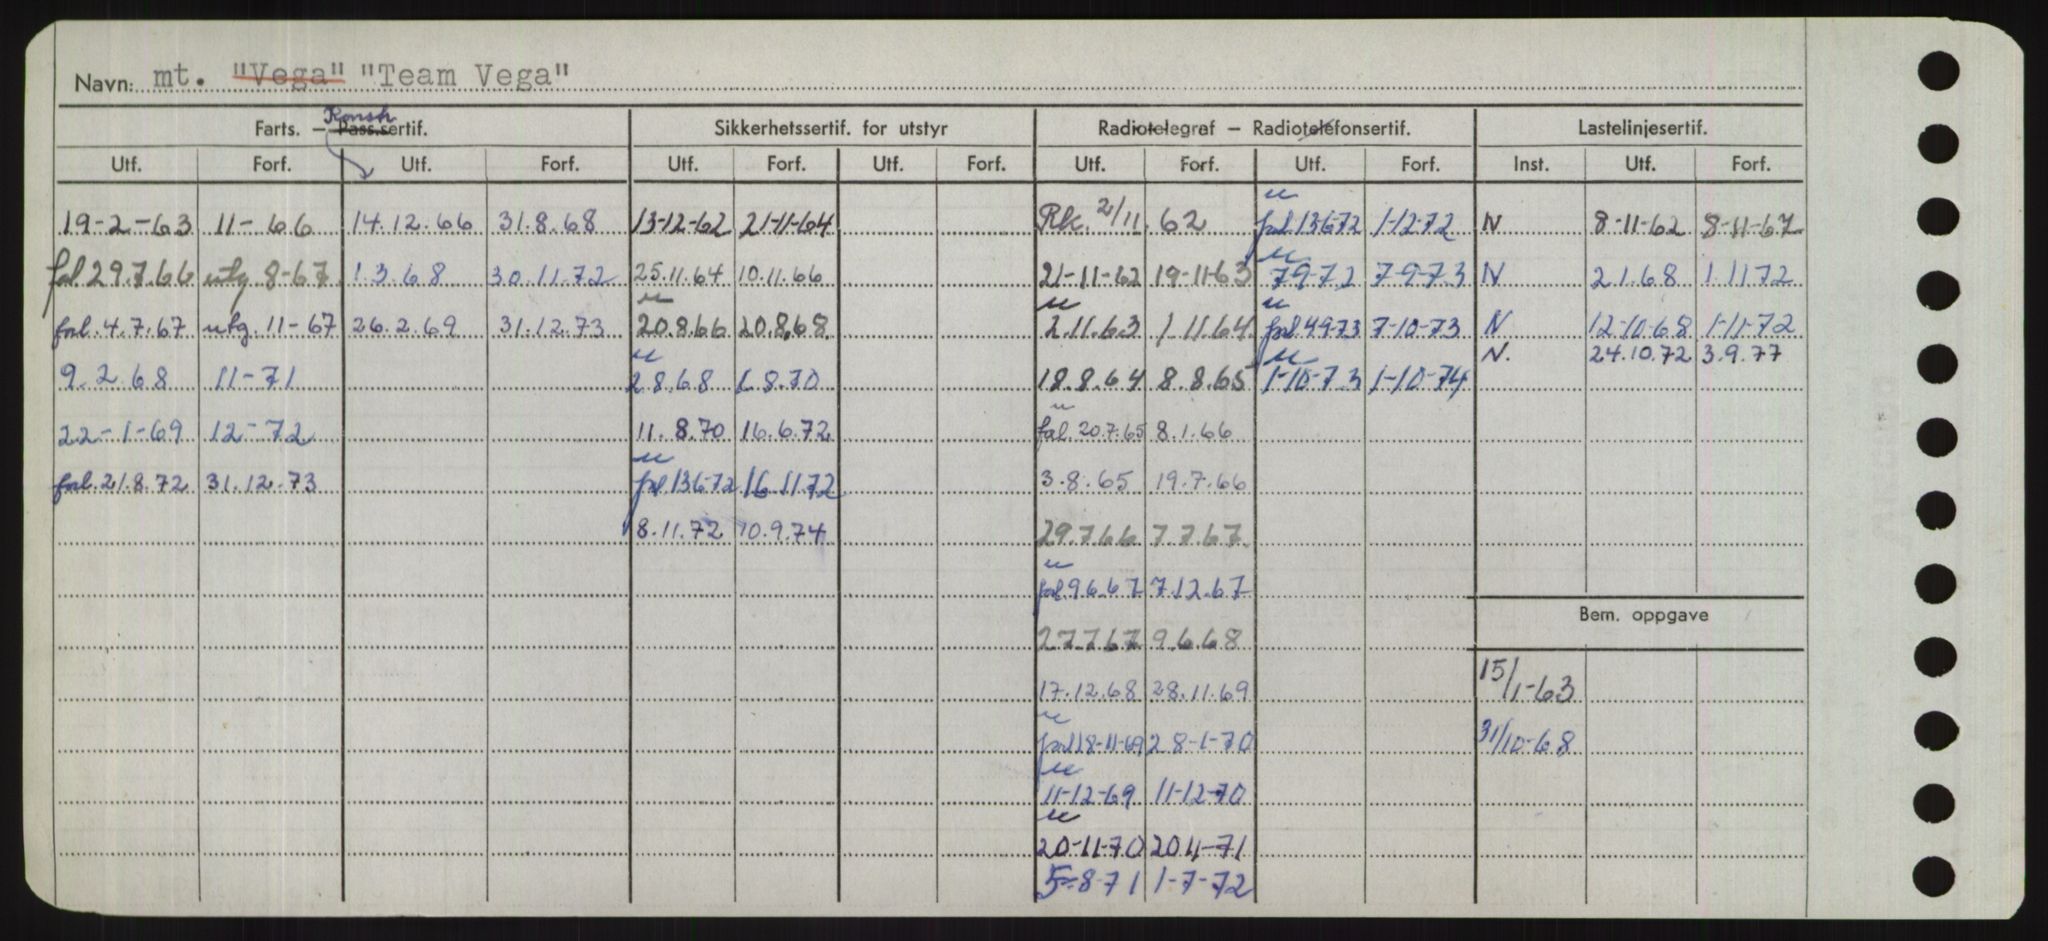 Navn: mt. "Vega" "Team Vega"
Farts. – Pass.sertif. Konstr Sikkerhetssertif. for utstyr Radiotelegraf – Radiotelefonsertif. Lastelinjesertif.
Utf. Forf. Utf. Forf. Utf. Forf. Utf. Forf. Utf. Forf. Utf. Forf. Inst. Utf. Forf.
19-2-63 11-66 14.12.66 31.8.68 13-12-62 21-11-64 Rk. 2/11.62 u fal 13672 1-1272 N 8-11-62 8-11-67
fal 29.7.66 utg 8-67 1.3.68 30.11.72 25.11.64 10.11.66 21-11-62 19-11-63 u 79-72 7-9-73 N 2.1.68 1.1172
fal. 4.7.67 utg. 11-67 26.2.69 31.12.73 u 20.8.66 20.8.68. u 2.11.63 1.11.64. u fal. 4973 7-10-73 N 12-10-68 1-11-72
N. 24.10.72 3.9.77
9.2.68 11-71 u 28.68 1.8.70 18.8.64 8.8.65 u 1-10-73 1-10-74
22-1-69 12-72 11.8.70 16.6.72 u fal. 20.7.65 8.1.66
fal. 21.8.72 31.12.73 u fal 13672 16.1172 3.8.65 19.7.66
8.11.72 10.9.74 29.766 7.7.67.
u fal. 96.67 7.12.67
Bem. oppgave
27767 9.6.68
15/1-63
17.12.68 28.11.69
u fal 18-11-69 28-1-70 31/10-68
u 11-12-69 11-12-70
u 20-11-70 20.4-71
5-8-71 1-7-72